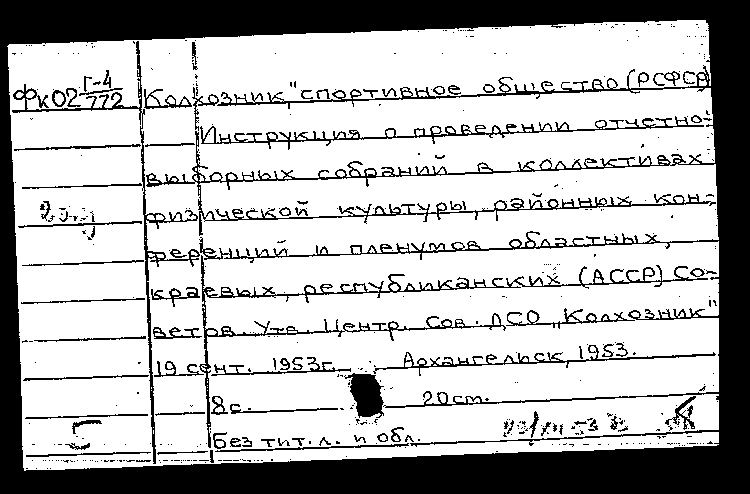 ФК02 Г-4/772
"Колхозник," спортивное общество (РСФСР)
Инструкция о проведении отчетно-
выборных собраний в коллективах
физической культуры, районных кон-
ференций и пленумов областных,
краевых, республиканских (АССР) Со-
ветов. Утв. Центр. Сов. ДСО „Колхозник"
19 сент. 1953г. Архангельск, 1953.
8с. 20см.
5 Без тит. л. и обл.